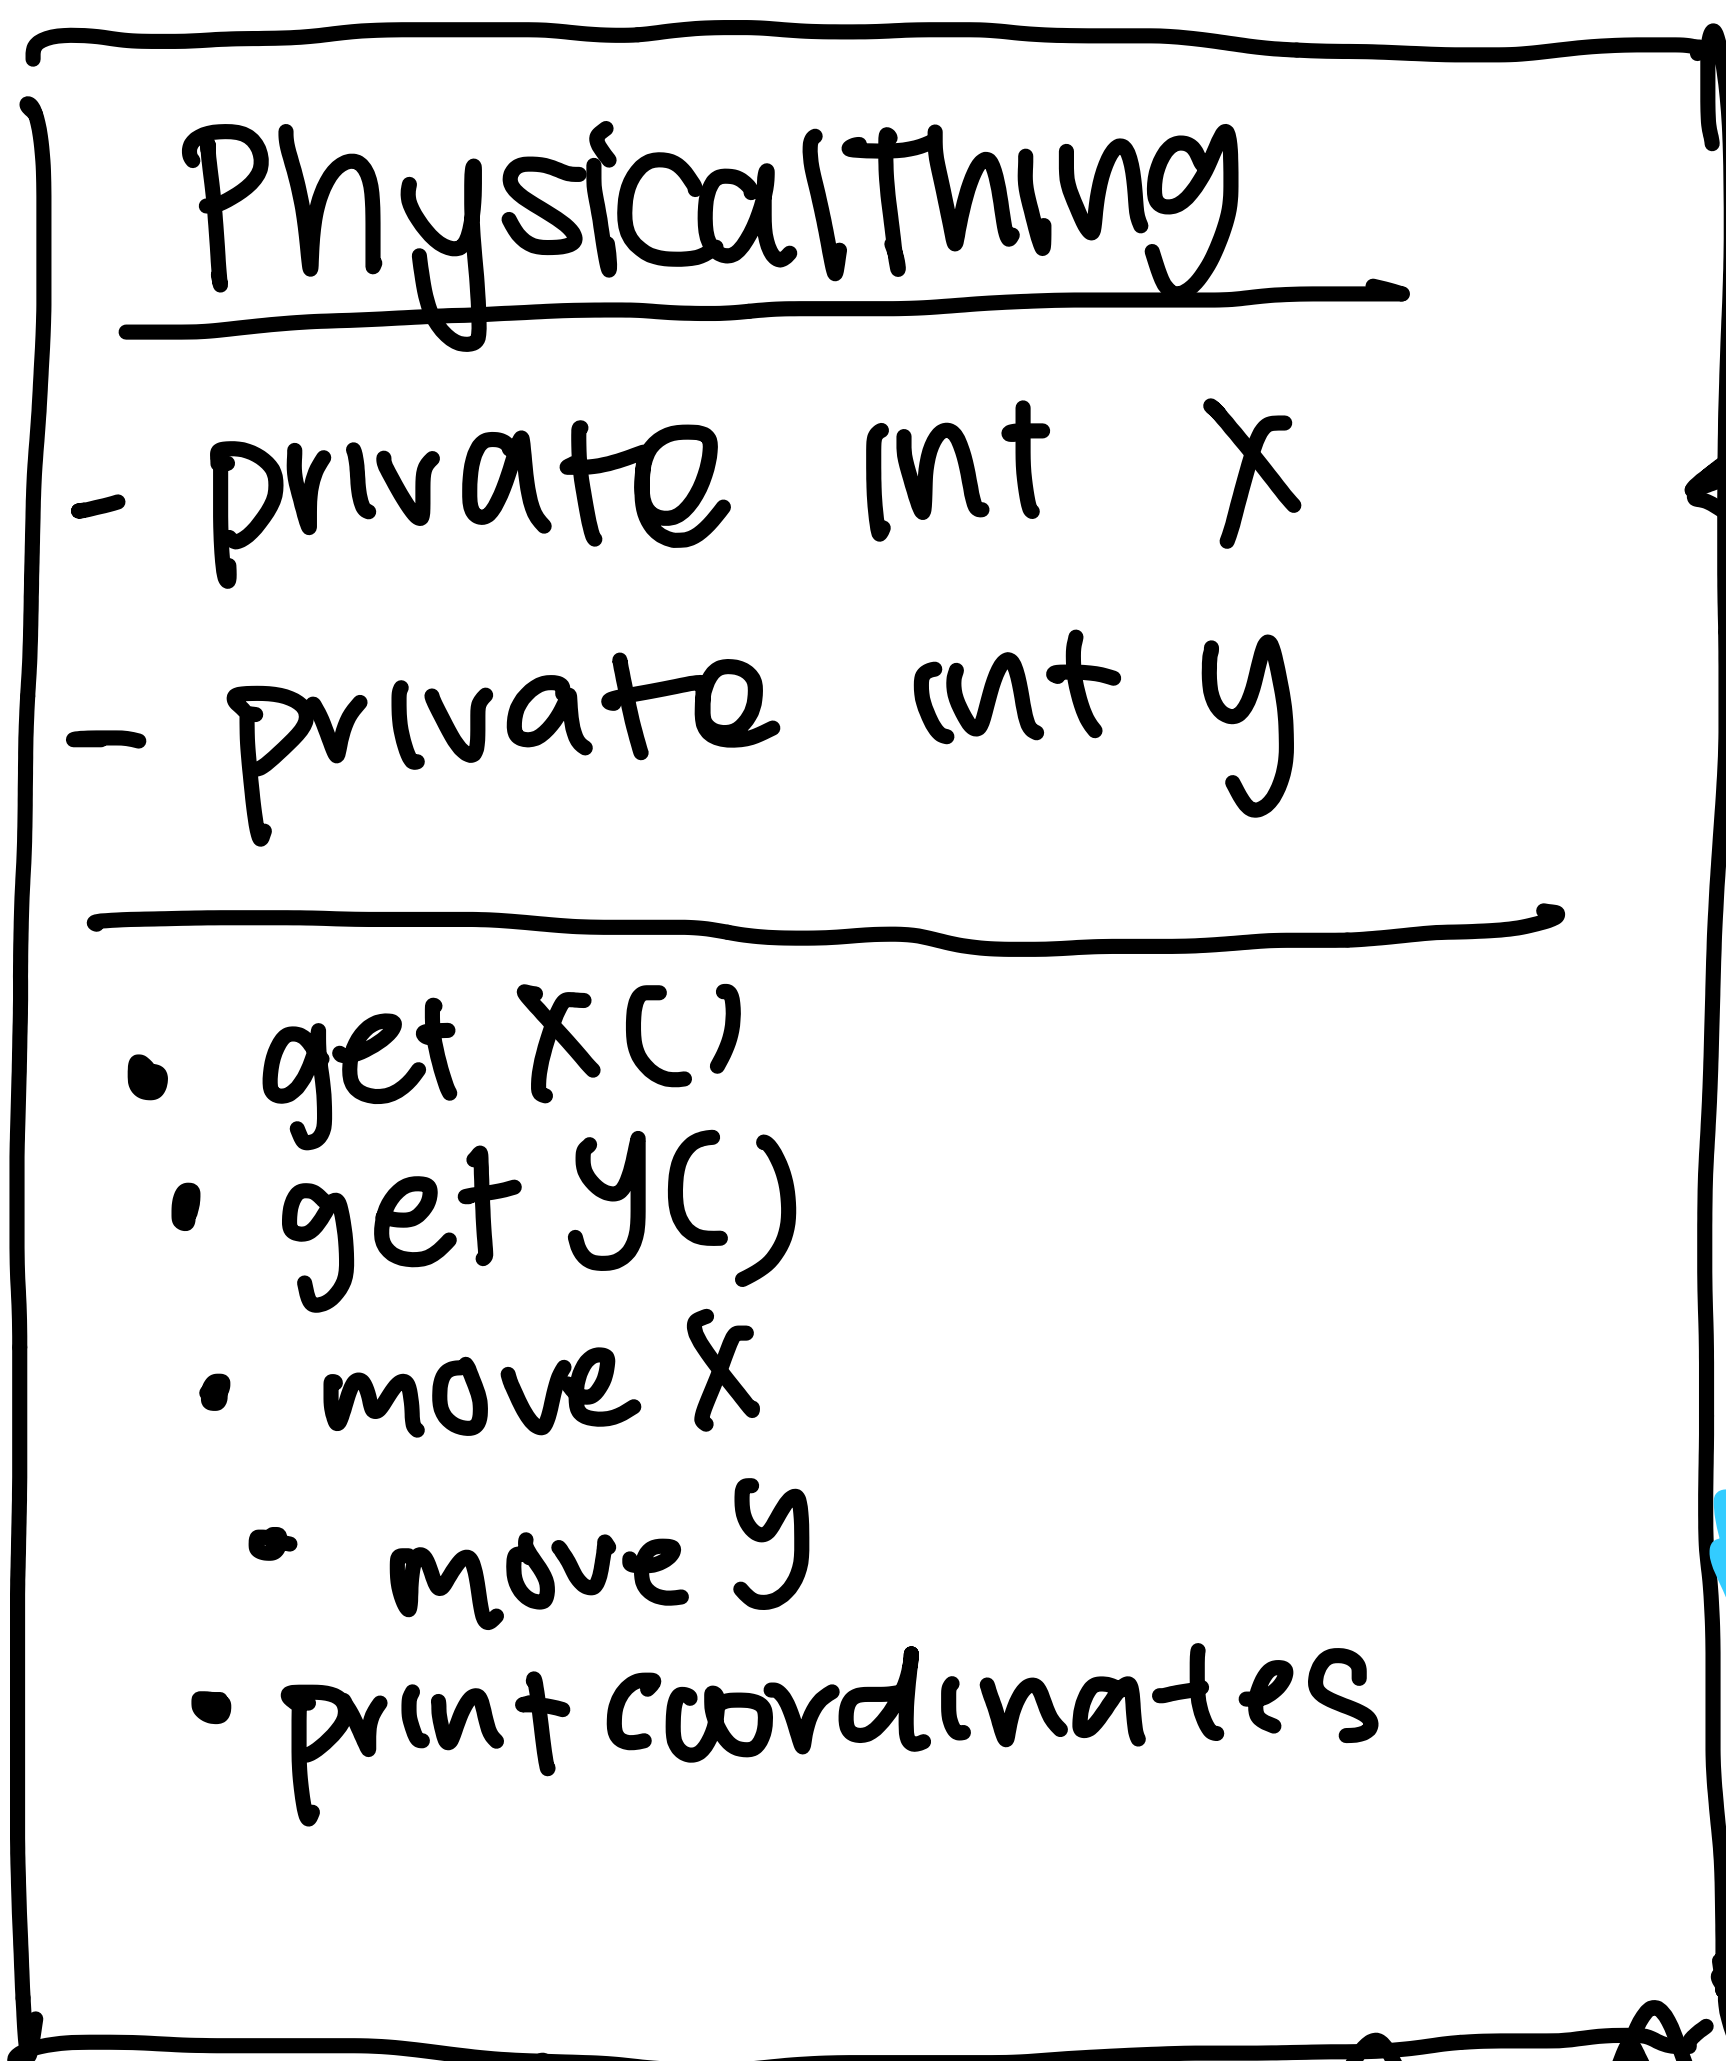 PhysicalThing
- private int x
- private int y
• get X()
• get Y()
• move X
• move y
• print coordinates